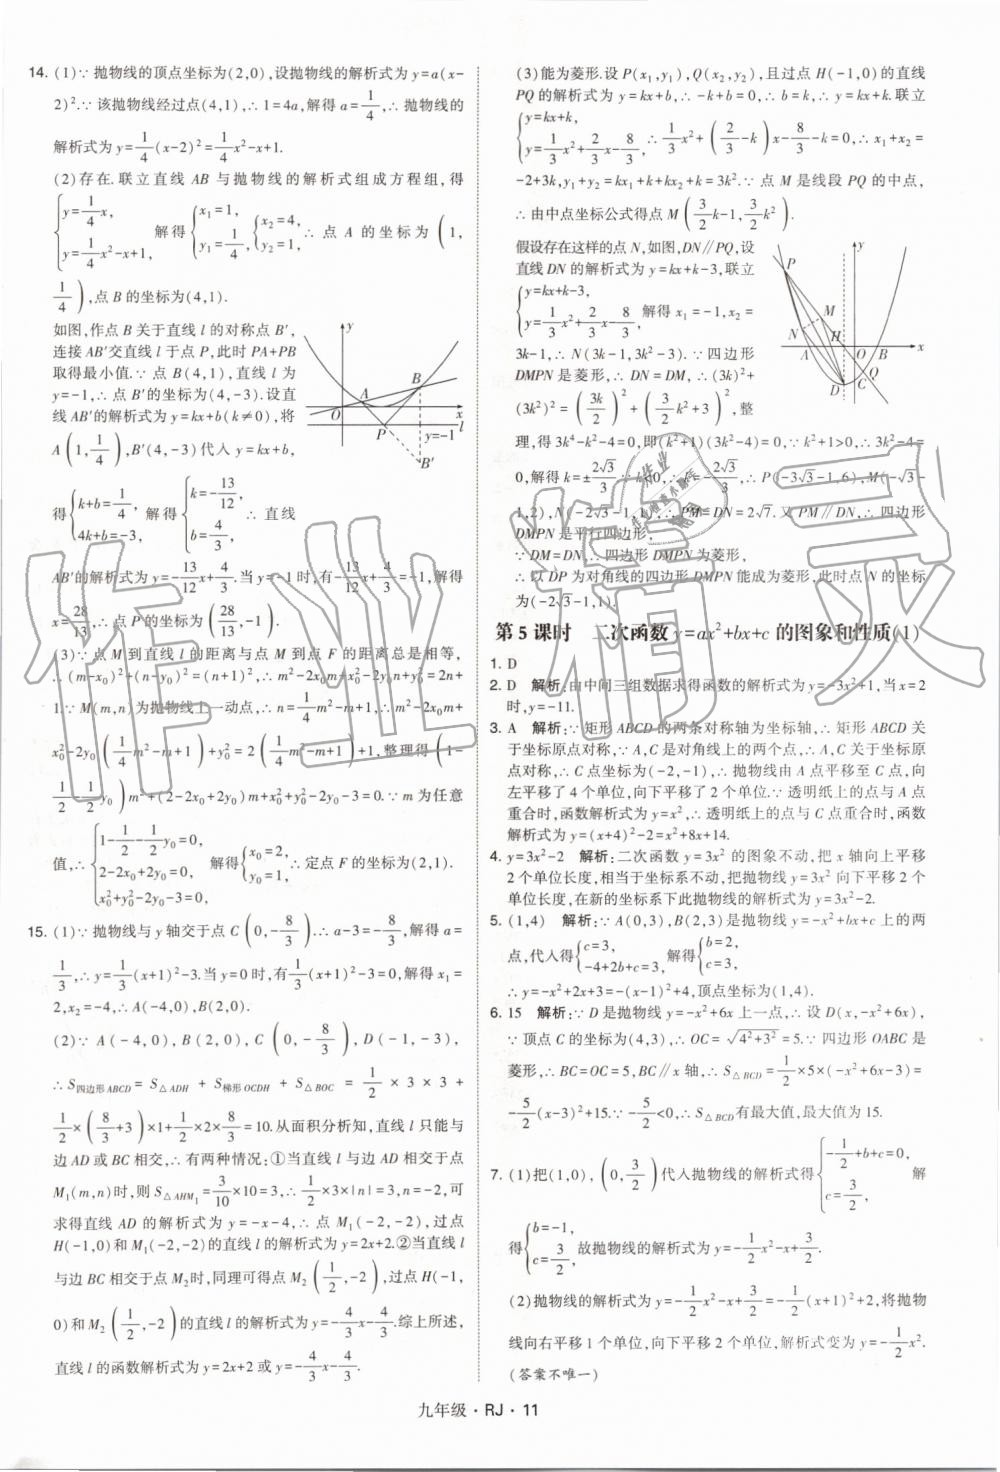 14. (1)∵ 抛物线的顶点坐标为(2,0),设抛物线的解析式为 y=a(x-
2)².∵ 该抛物线经过点(4,1),∴ 1=4a,解得 a=1/4,∴ 抛物线的
解析式为 y=1/4(x-2)²=1/4x²-x+1.
(2)存在.联立直线 AB 与抛物线的解析式组成方程组,得
{y=1/4x, y=1/4x²-x+1, 解得{x₁=1, y₁=1/4, {x₂=4, y₂=1. ∴ 点 A 的坐标为(1,
1/4),点 B 的坐标为(4,1).
如图,作点 B 关于直线 l 的对称点 B′,
连接 AB′交直线 l 于点 P,此时 PA+PB
取得最小值.∵ 点 B(4,1),直线 l 为
y=-1,∴ 点 B′的坐标为(4,-3).设直
线 AB′的解析式为 y=kx+b(k≠0),将
A(1,1/4),B′(4,-3)代入 y=kx+b,
得{k+b=1/4, 4k+b=-3, 解得{k=-13/12, b=4/3, ∴ 直线
AB′的解析式为 y=-13/12x+4/3.当 y=-1 时,有-13/12x+4/3=-1,解得
x=28/13,∴ 点 P 的坐标为(28/13,-1).
(3)∵ 点 M 到直线 l 的距离与点 M 到点 F 的距离总是相等,
∴ (m-x₀)²+(n-y₀)²=(n+1)²,∴ m²-2x₀m+x₀²-2y₀n+y₀²=2n+
1.∵ M(m,n)为抛物线上一动点,∴ n=1/4m²-m+1,∴ m²-2x₀m+
x₀²-2y₀(1/4m²-m+1)+y₀²=2(1/4m²-m+1)+1,整理得(1-
1/2-1/2y₀)m²+(2-2x₀+2y₀)m+x₀²+y₀²-2y₀-3=0.∵ m 为任意
值,∴{1-1/2-1/2y₀=0, 2-2x₀+2y₀=0, x₀²+y₀²-2y₀-3=0, 解得{x₀=2, y₀=1. ∴ 定点 F 的坐标为(2,1).
15. (1)∵ 抛物线与 y 轴交于点 C(0,-8/3).∴ a-3=-8/3,解得 a=
1/3,∴ y=1/3(x+1)²-3.当 y=0 时,有1/3(x+1)²-3=0,解得 x₁=
2,x₂=-4,∴ A(-4,0),B(2,0).
(2)∵ A(-4,0),B(2,0),C(0,-8/3),D(-1,-3),
∴ S四边形ABCD=S△ADH+S梯形OCDH+S△BOC=1/2×3×3+
1/2×(8/3+3)×1+1/2×2×8/3=10.从面积分析知,直线 l 只能与
边 AD 或 BC 相交,∴ 有两种情况:①当直线 l 与边 AD 相交于点
M₁(m,n)时,则 S△AHM₁=3/10×10=3,∴ 1/2×3×|n|=3,可
求得直线 AD 的解析式为 y=-x-4,∴ 点 M₁(-2,-2),过点
H(-1,0)和 M₁(-2,-2)的直线 l 的解析式为 y=2x+2.②当直线 l
与边 BC 相交于点 M₂时,同理可得点 M₂(1/2,-2),过点 H(-1,
0)和 M₂(1/2,-2)的直线 l 的解析式为 y=-4/3x-4/3.综上所述,
直线 l 的函数解析式为 y=2x+2 或 y=-4/3x-4/3.
y
A
B
O
x
l
P
y=-1
B′
(3)能为菱形.设 P(x₁,y₁),Q(x₂,y₂),且过点 H(-1,0)的直线
PQ 的解析式为 y=kx+b,∴ -k+b=0,∴ b=k,∴ y=kx+k.联立
{y=kx+k, y=1/3x²+2/3x-8/3, ∴ 1/3x²+(2/3-k)x-8/3-k=0,∴ x₁+x₂=
-2+3k,y₁+y₂=kx₁+k+kx₂+k=3k².∵ 点 M 是线段 PQ 的中点,
∴ 由中点坐标公式得点 M(3/2k-1,3/2k²).
假设存在这样的点 N,如图,DN∥PQ,设
直线 DN 的解析式为 y=kx+k-3,联立
{y=kx+k-3, y=1/3x²+2/3x-8/3, 解得 x₁=-1,x₂=
3k-1,∴ N(3k-1,3k²-3).∵ 四边形
DMPN 是菱形,∴ DN=DM,∴ (3k)²+
(3k²)²=(3k/2)²+(3/2k²+3)²,整
理,得 3k⁴-k²-4=0,即(k²+1)(3k²-4)=0,∵ k²+1>0,∴ 3k²-4=
0,解得 k=±2√3/3.∵ k<0,∴ k=-2√3/3,∴ P(-3√3-1,6),M(-√3-
1,2),N(-2√3-1,1),∴ PM=DN=2√7.又 PM∥DN,∴ 四边形
DMPN 是平行四边形,
∵ DM=DN,∴ 四边形 DMPN 为菱形,
∴ 以 DP 为对角线的四边形 DMPN 能成为菱形,此时点 N 的坐标
为(-2√3-1,1).
P
y
M
N
H
A
O
B
x
Q
C
D
第 5 课时 二次函数 y=ax²+bx+c 的图象和性质(1)
1. D
2. D 解析:由中间三组数据求得函数的解析式为 y=-3x²+1,当 x=2
时,y=-11.
3. A 解析:∵ 矩形 ABCD 的两条对称轴为坐标轴,∴ 矩形 ABCD 关
于坐标原点对称,∵ A,C 是对角线上的两个点,∴ A,C 关于坐标原
点对称,∴ C 点坐标为(-2,-1),∴ 抛物线由 A 点平移至 C 点,向
左平移了 4 个单位,向下平移了 2 个单位.∵ 透明纸上的点与 A 点
重合时,函数解析式为 y=x²,∴ 透明纸上的点与 C 点重合时,函数
解析式为 y=(x+4)²-2=x²+8x+14.
4. y=3x²-2 解析:二次函数 y=3x² 的图象不动,把 x 轴向上平移
2 个单位长度,相当于坐标系不动,把抛物线 y=3x² 向下平移 2 个
单位长度,∴ 在新的坐标系下此抛物线的解析式为 y=3x²-2.
5. (1,4) 解析:∵ A(0,3),B(2,3)是抛物线 y=-x²+bx+c 上的两
点,代入得{c=3, -4+2b+c=3, 解得{b=2, c=3,
∴ y=-x²+2x+3=-(x-1)²+4,顶点坐标为(1,4).
6. 15 解析:∵ D 是抛物线 y=-x²+6x 上一点,∴ 设 D(x,-x²+6x),
∵ 顶点 C 的坐标为(4,3),∴ OC=√4²+3²=5.∵ 四边形 OABC 是
菱形,∴ BC=OC=5,BC∥x 轴,∴ S△BCD=1/2×5×(-x²+6x-3)=
-5/2(x-3)²+15.∵ -5/2<0,∴ S△BCD有最大值,最大值为 15.
7. (1)把(1,0),(0,3/2)代入抛物线的解析式得{-1/2+b+c=0, c=3/2, 解
得{b=-1, c=3/2. 故抛物线的解析式为 y=-1/2x²-x+3/2.
(2)抛物线的解析式为 y=-1/2x²-x+3/2=-1/2(x+1)²+2,将抛物
线向右平移 1 个单位,向下平移 2 个单位,解析式变为 y=-1/2x².
(答案不唯一)
九年级 · RJ · 11
作业精灵